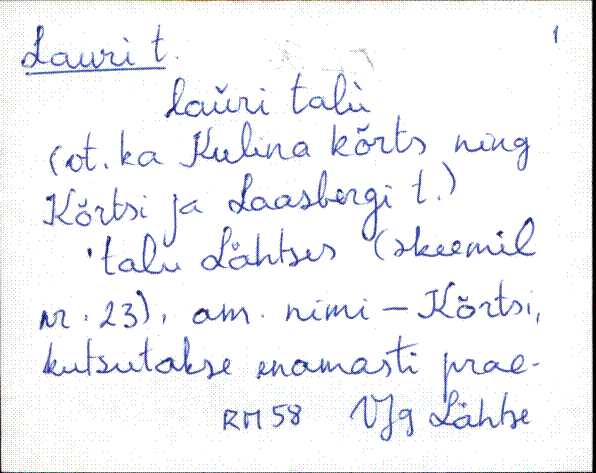 Lauri t. 1
lau̯ri talù
(vt. ka Kulina kõrts ning
Kõrtsi ja Laasbergi t.)
'talu Lähtses (skeemil
nr. 23), am. nimi – Kõrtsi,
kutsutakse enamasti prae-
RM 58 VJg Lähtse